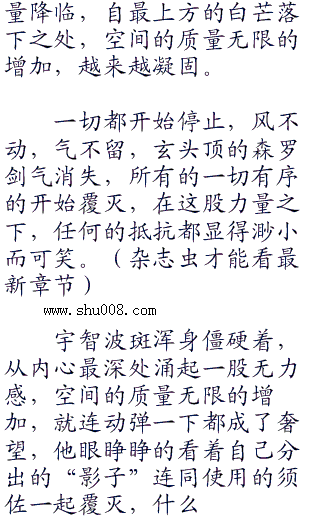 量降临，自最上方的白芒落
下之处，空间的质量无限的
增加，越来越凝固。
一切都开始停止，风不
动，气不留，玄头顶的森罗
剑气消失，所有的一切有序
的开始覆灭，在这股力量之
下，任何的抵抗都显得渺小
而可笑。（杂志虫才能看最
新章节）
www.shu008.com
宇智波斑浑身僵硬着，
从内心最深处涌起一股无力
感，空间的质量无限的增
加，就连动弹一下都成了奢
望，他眼睁睁的看着自己分
出的“影子”连同使用的须
佐一起覆灭，什么